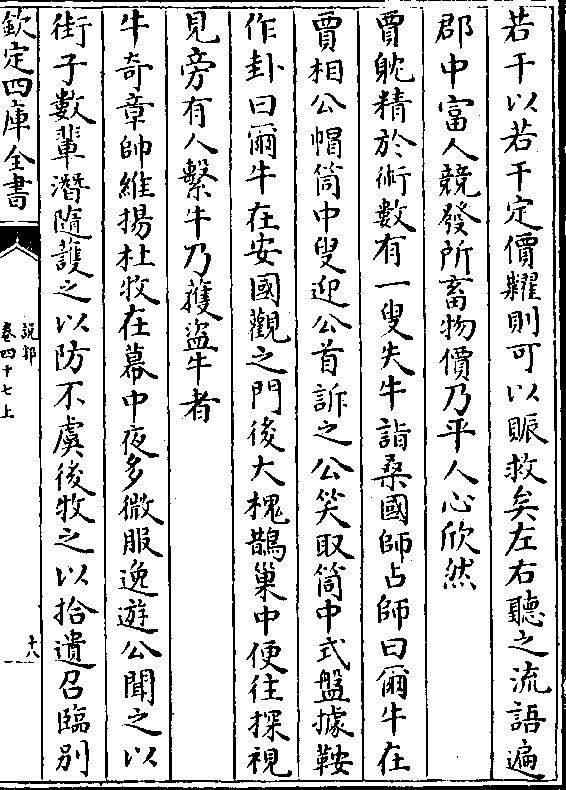 若干以若干定價糶則可以賑救矣左右聽之流語遍
郡中富人競發所畜物價乃平人心欣然
賈躭精於術數有一叟失牛詣桑國師占師曰爾牛在
賈相公帽筒中叟迎公首訴之公笑取筒中式盤據鞍
作卦曰爾牛在安國觀之門後大槐鵲巢中便往探視
見旁有人繫牛乃獲盜牛者
牛奇章帥維揚杜牧在幕中夜多微服逸遊公聞之以
街子數輩潛隨護之以防不虞後牧之以拾遺召臨別
欽定四庫全書
說郛
卷四十七上
十八